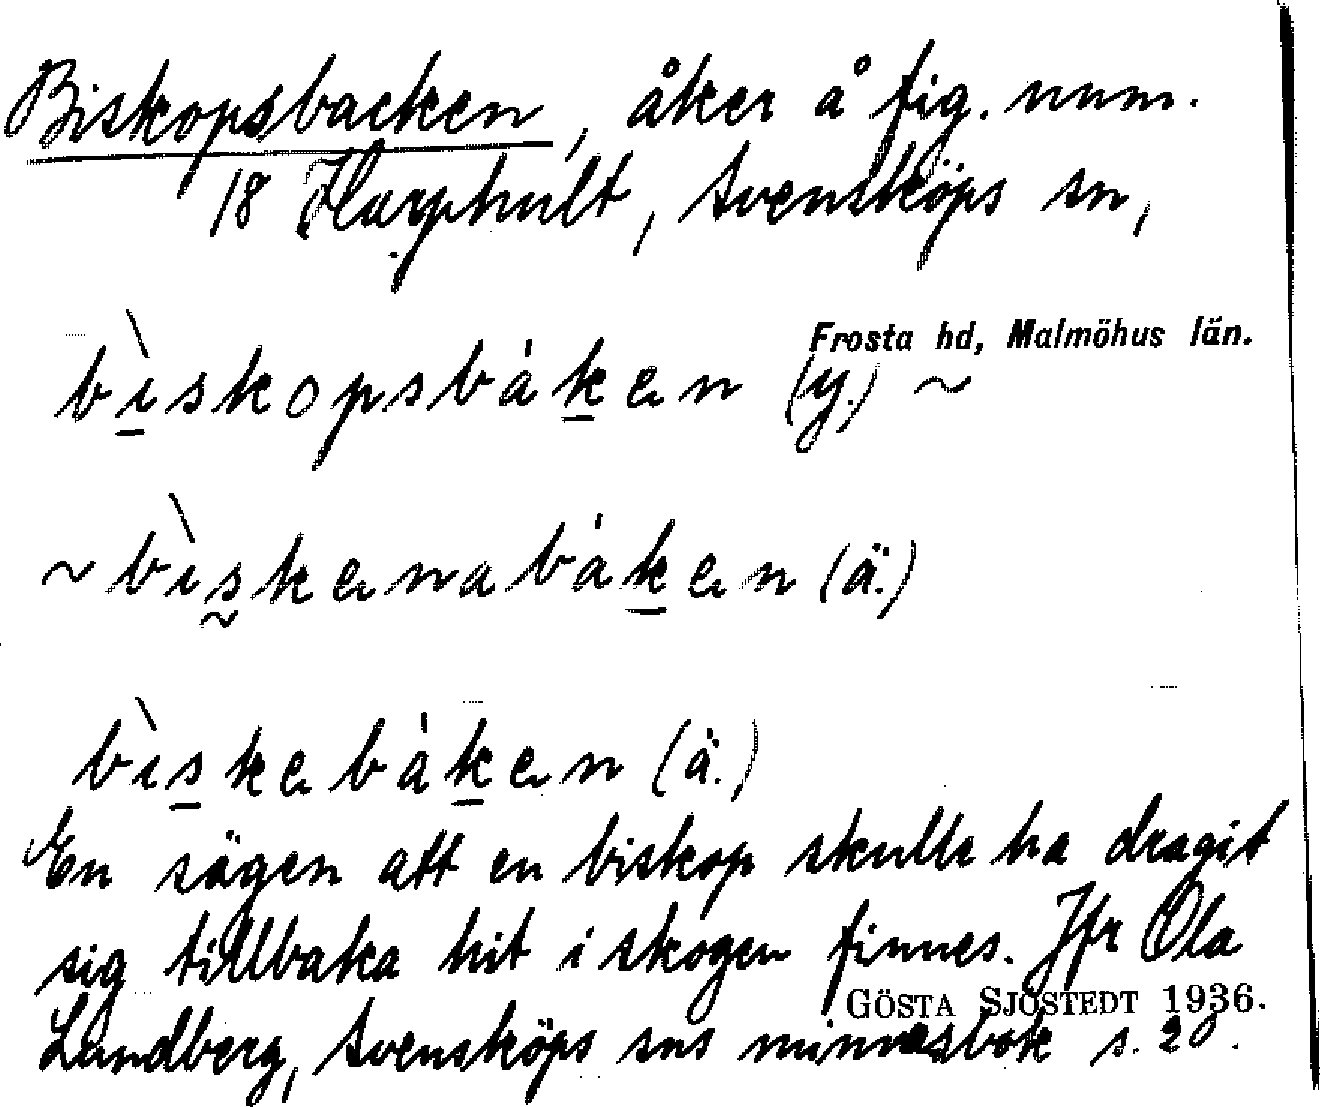 Biskopsbacken, åker å fig. num.
18 Harphult, Svensköps sn,
Frosta hd, Malmöhus län.
bìskopsbáken (y.) ~
~ bìskenabáken (ä.)
bìskebáken (ä.)
En sägen att en biskop skulle ha dragit
sig tillbaka hit i skogen finnes. Jfr Ola
GÖSTA SJÖSTEDT 1936.
Lundberg, Svensköps sns minnesbok s. 20.